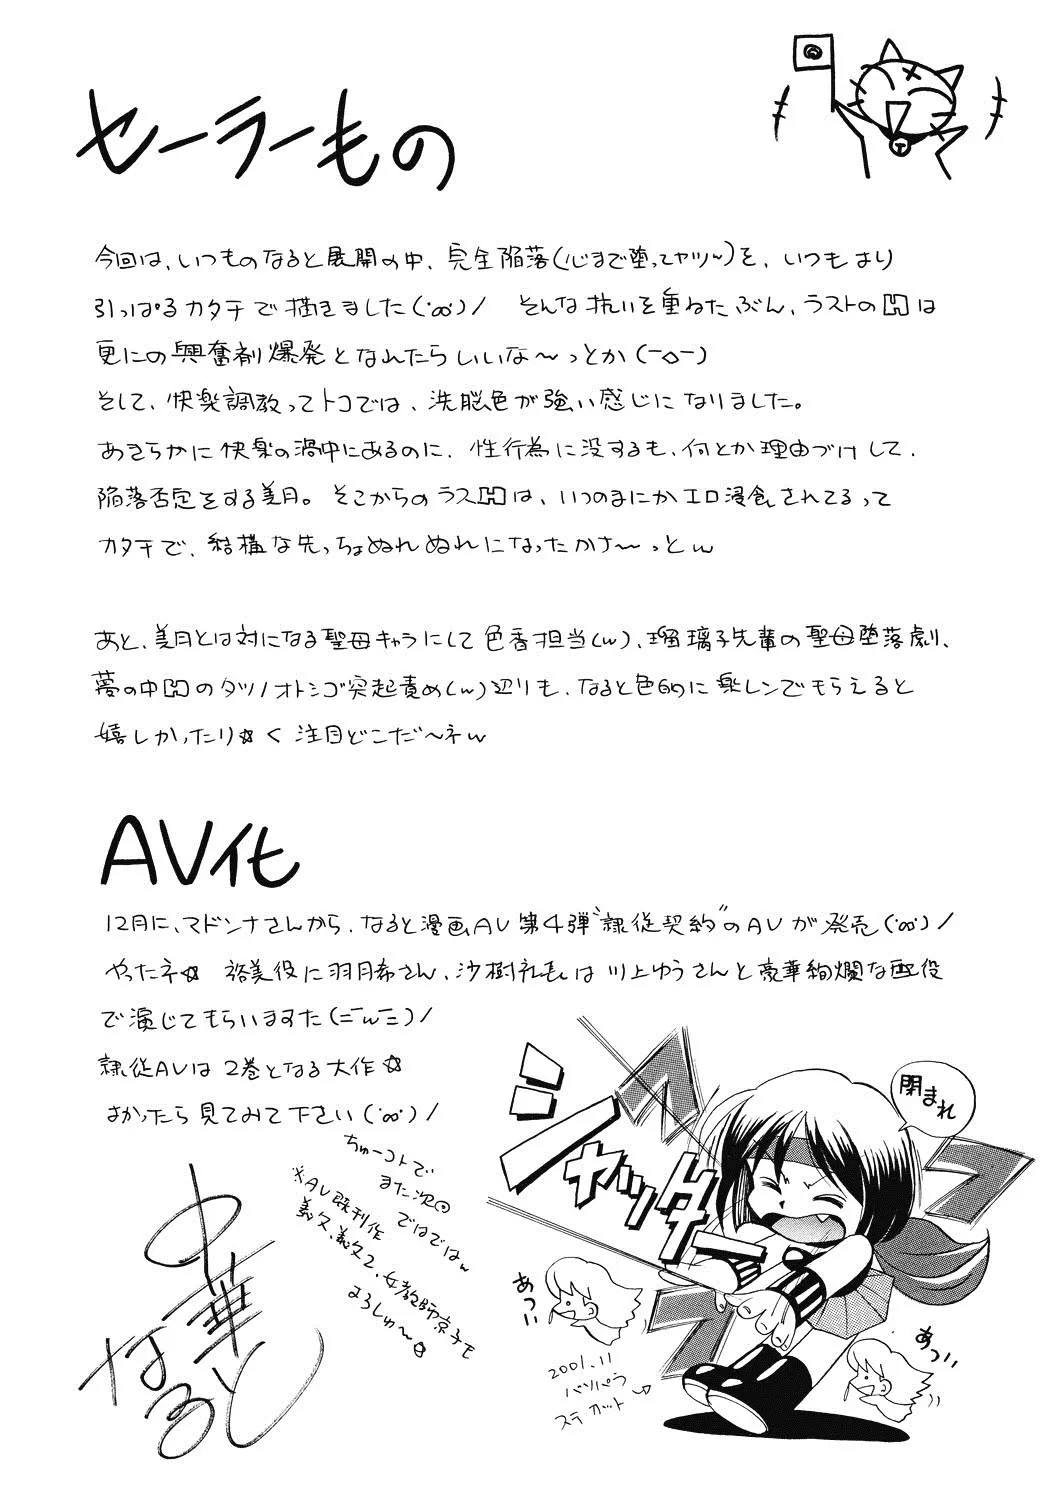 セーラーもの
今回は、いつものなると展開の中、完全陥落(心まで堕ってヤツ~)を、いつもより
引っぱるカタチで描きました(･ω･)/ そんな抗いを重ねたぶん、ラストのHは
更にの興奮剤爆発となれたらいいな~っとか(ー◇ー)
そして、快楽調教ってトコでは、洗脳色が強い感じになりました。
あきらかに快楽の渦中にあるのに、性行為に没するも、何とか理由づけして、
陥落否定をする美月。そこからのラスHは、いつのまにかエロ浸食されてるって
カタチで、結構な先っちょぬれぬれになったかさ~っとw
あと、美月とは対になる聖母キャラにして色香担当(w)、瑠璃子先輩の聖母堕落劇、
夢の中Hのタツノオトシゴ突起責め(w)辺りも、なると色的に楽しンでもらえると
嬉しかったり☆く注目どこだ~ネw
AV化
12月に、マドンナさんから、なると漫画AV第4弾"隷従契約"のAVが発売(･ω･)/
やったネ☆ 裕美役に羽月希さん、沙樹礼 は川上ゆうさんと豪華絢爛な配役
で演じてもらいますた(=ーwー=)/
隷従AVは2巻となる大作☆
よかったら見てみて下さい(･ω･)/
ちゅーコトで
また次回
ではではw
※AV既刊作
義父、義父2、女教師京子も
よろしゅ~☆
中華なると
シャッター
閉まれ
あつい
あつい
2001.11
バソパラ
ステカット